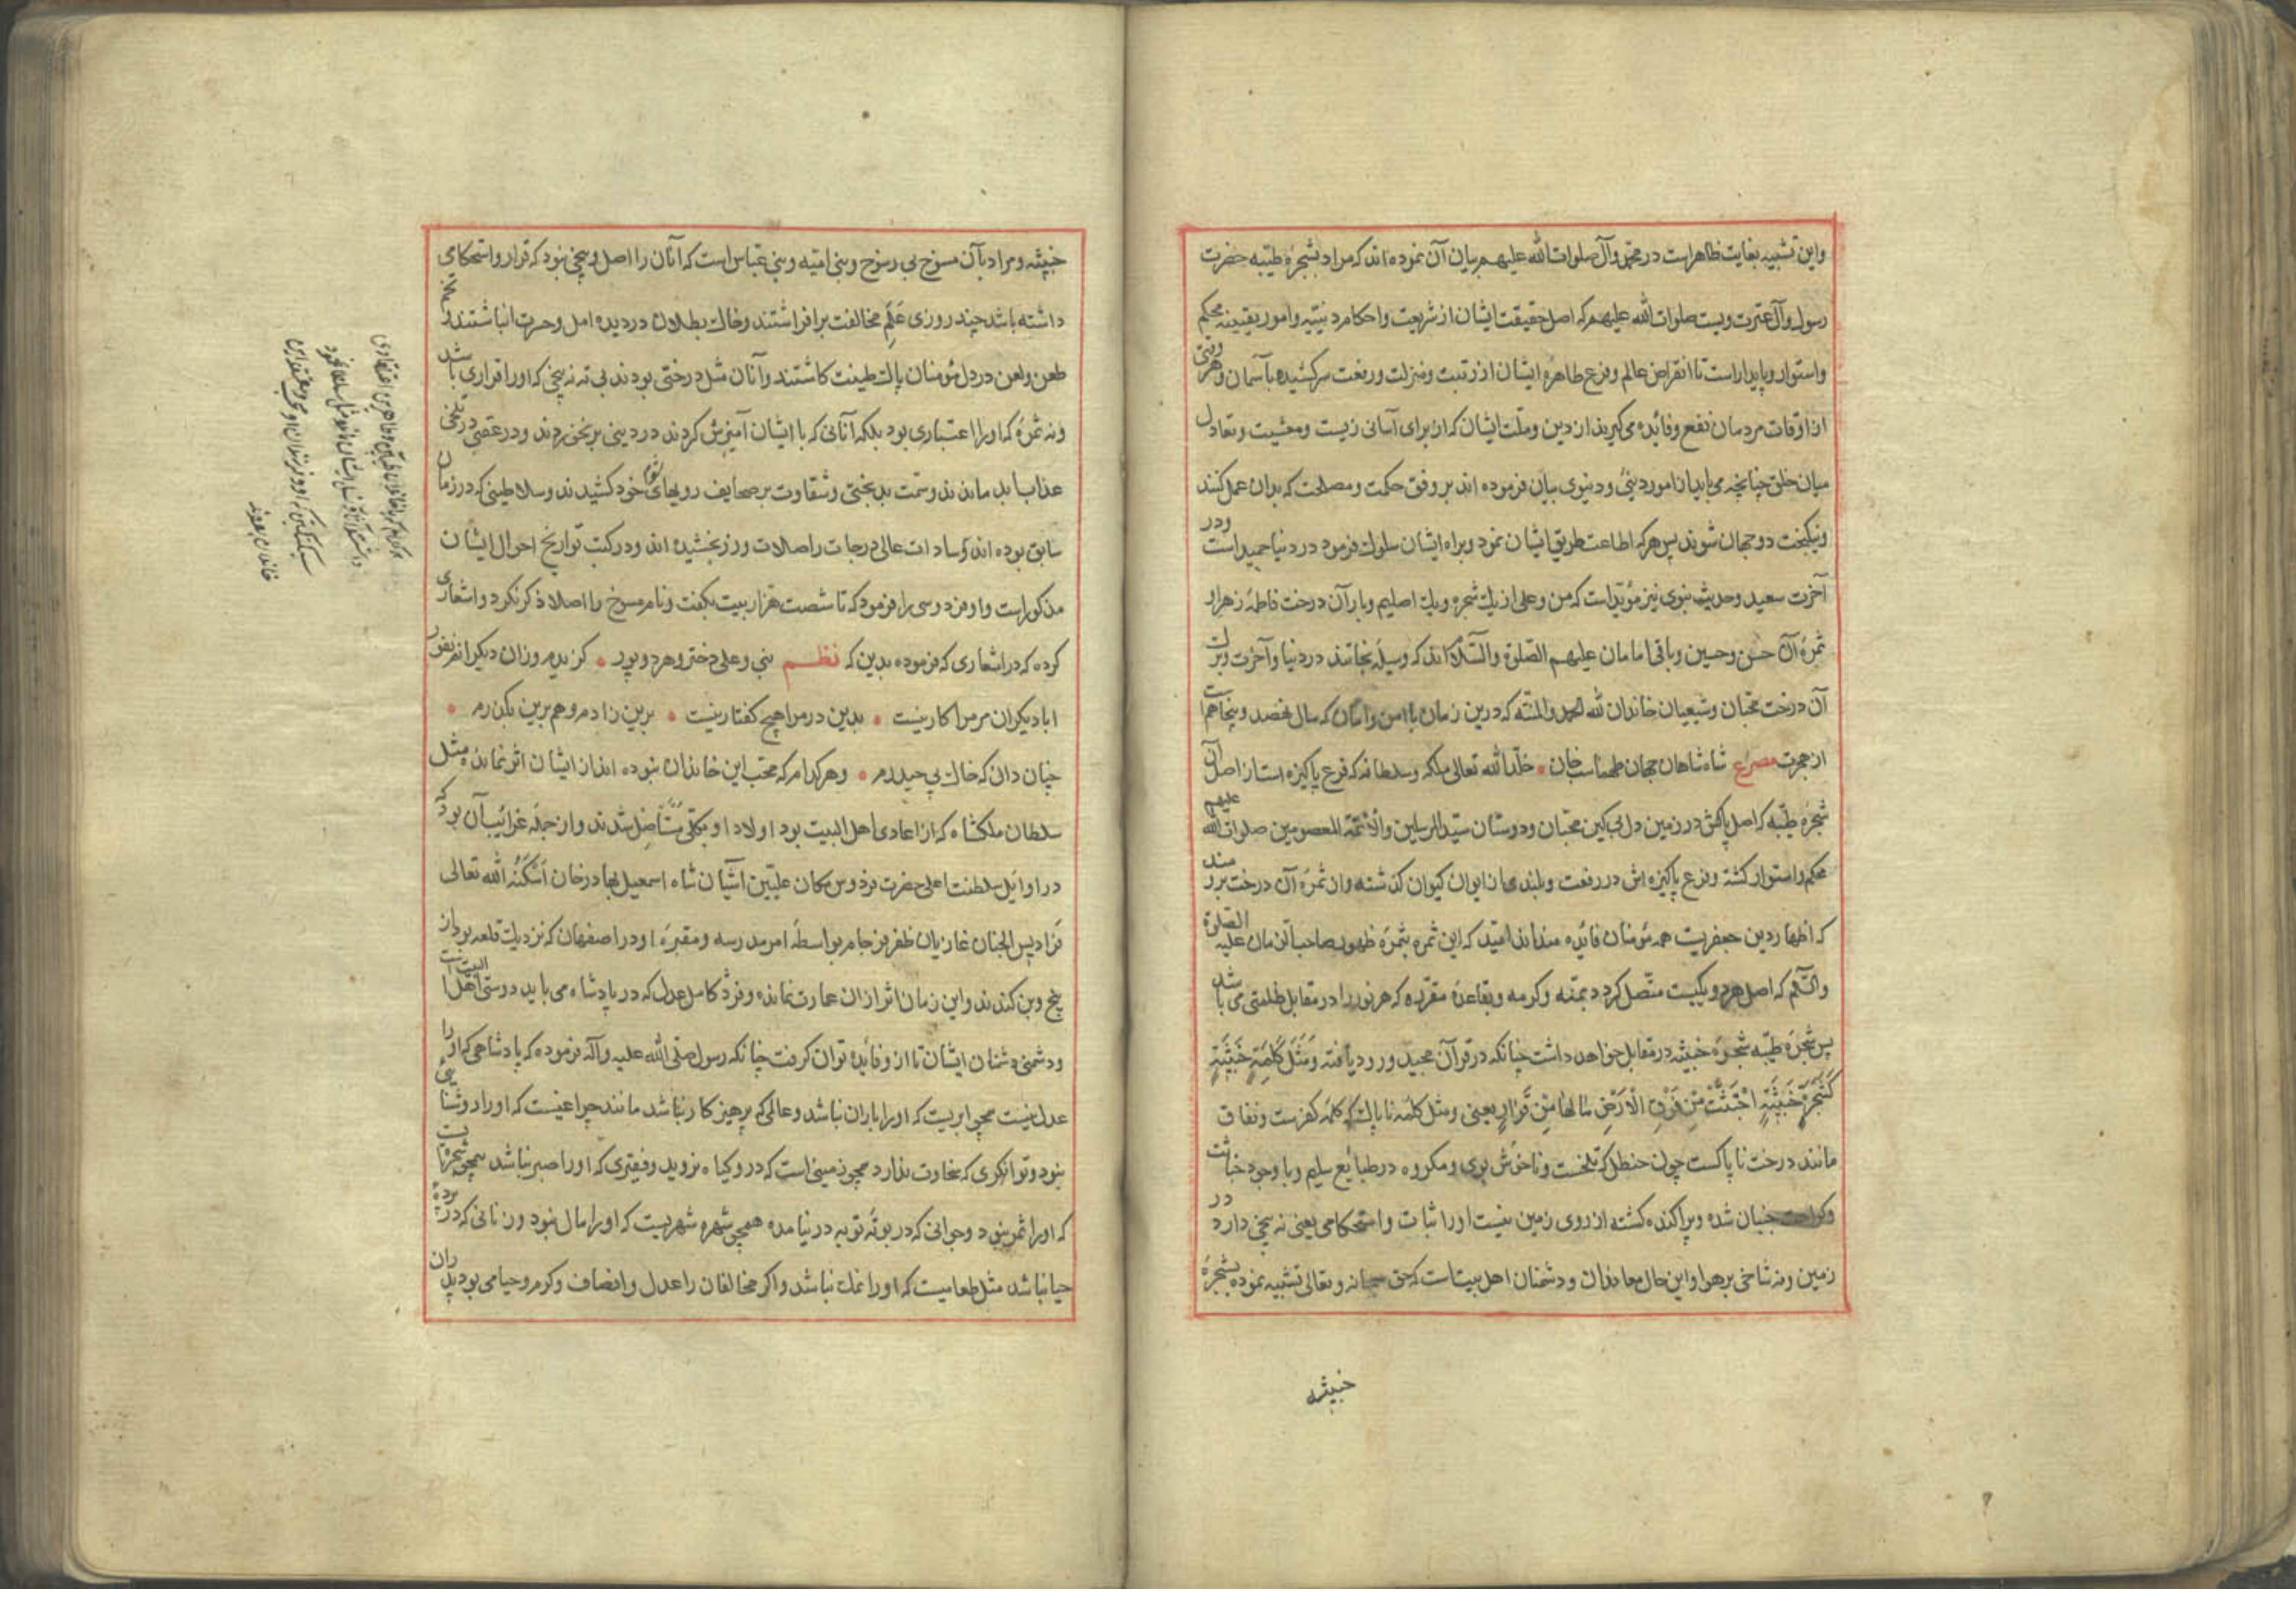 واین تشبیه بغایت ظاهر است در محمد وآل صلوات الله علیهم بیان آن نموده‌اند که مراد بشجرۀ طیّبه حضرت
رسول وآل عترت ویست صلوات الله علیهم که اصل حقیقت ایشان از شریعت واحکام دینیّه وامور یقینیه محکم
واستوار وپایدار است تا انقراض عالم وفرع طاهرۀ ایشان از رتبت ومنزلت ورفعت سرکشیده بآسمان وهر وقتی
از اوقات مردمان نفع وفائده می‌کیرند از دین وملّت ایشان که از برای آسانی زیست ومعیشت وتعادل
میان خلق چنانچه می‌باید از امور دینی ودنیوی بیان فرموده اند بر وفق حکمت ومصلحت که بدان عمل کنند
ونیکبخت دو جهان شوند پس هرکه اطاعت طریق ایشان نمود وبراه ایشان سلوک فرمود در دنیا حمید است ودر
آخرت سعید وحدیث نبوی نیز مؤیّد است که من وعلی از یک شجره ویک اصلیم وبار آن درخت فاطمۀ زهرا و
ثمرۀ آن حسن وحسین وباقی امامان علیهم الصلوة والسّلام‌اند که وسیلۀ نجاتند در دنیا وآخرت وبرک
آن درخت محبّان وشیعیان خاندان لله الحمد والمنّه که درین زمان با امن وامان که سال نهصد وپنجاهم است
از هجرت مصرع شاه شاهان جهان طهماسب خان خلّد الله تعالی ملکه وسلطانه که فرع پاکیزه است از اصل آن
شجرۀ طیّبه که اصل پاکش در زمین دل بی کین محبّان ودوستان سیّد المرسلین والأئمّة المعصومین صلوات الله علیهم
محکم واستوار کشته وفرع پاکیزه اش در رفعت وبلندی از ایوان کیوان کذشته وان ثمرۀ آن درخت برومند
که اظهار دین جعفریست همه مؤمنان فائده مند‌اند امّید که این ثمره بثمرۀ ظهور صاحب الزمان علیه الصلوة
والسّلم که اصل هر دو یکیست متّصل کردد بمنّه وکرمه وبقاعدۀ مقرّره که هر نور را در مقابل ظلمتی می باشد
پس شجرۀ طیّبه شجرۀ خبیثه در مقابل خواهد داشت چنانکه در قرآن مجید ورود یافته وَمَثَلُ كَلِمَةٍ خَبِيثَةٍ
كَشَجَرَةٍ خَبِيثَةٍ اجْتُثَّتْ مِن فَوْقِ الْأَرْضِ مَا لَهَا مِن قَرَارٍ یعنی ومثل کلمۀ ناپاک که کلمۀ کفرست ونفاق
مانند درخت ناپاکست چون حنظل که تلخست وناخوش بوی ومکروه در طبایع سلیم وبا وجود خباثت
وکراهت جنبان شده وپراکنده کشته از روی زمین نیست اورا ثبات واستحکامی یعنی نه بیخی دارد در
زمین ونه شاخی بر هوا واین حال معاندان ودشمنان اهل بیت است که حق سبحانه وتعالی تشبیه نموده بشجرۀ
خبیثه
خبیثه ومراد بآن مسوخ بی رسوخ وبنی امّیه وبنی عبّاس است که آنان را اصل وبیخی نبود که قرار واستحکامی
داشته باشد چند روزی عَلَم مخالفت برافراشتند وخاک بطلان در دیده امل وحسرت انباشتند و
طعن ولعن در دل مؤمنان پاک طینت کاشتند وآنان مثل درختی بودند بی ته نه بیخی که اورا قراری باشد
ونه ثمرۀ که اورا اعتباری بود بلکه آنانی که با ایشان آمیزش کردند در دینی بر نخوردند ودر عقبی در تلخی
عذاب ابد ماندند وسمت بدبختی وشقاوت بر صحایف رویهای شوم خود کشیدند وسلاطینی که در زمان
سابق بوده اند وسادات عالی درجات را صلات وزر بخشیده اند ودر کتب تواریخ احوال ایشان
مذکور است واو فردوسی را فرمود که تا شصت هزار بیت بکفت ونام مسوخ را اصلا ذکر نکرد واشعاری
کرده که در اشعاری که فرموده بدین که نظم نبی وعلی دختر وهر دو پور کزیدم وزان دیکرانم نفور
ابا دیکران مر مرا کار نیست بدین در مرا هیچ کفتار نیست برین زادم وهم برین بکذرم
چنان دان که خاک پی حیدرم وهر کدام که محبّ این خاندان نبوده اند از ایشان اثر نمانده مثل
سلطان ملکشاه که از اعادی اهل البیت بود اولاد او بکلّی مستأصل شدند واز جمله غرائب آن بود که
در اوایل سلطنت اعلی حضرت فردوس مکان علیّین آشیان شاه اسمعیل بهادر خان اَسْکَنَهُ الله تعالی
فرادیس الجنان غازیان ظفر فرجام بواسطۀ امر مدرسه ومقبرۀ او در اصفهان که نزدیک قلعه بود از
بیخ وبن کندند واین زمان اثر از ان عمارت نمانده وفرد کامل عدل که در پادشاه می باید دوستی اهل البیت است
ودشمنی دشنان ایشان تا از و فایده توان کرفت چنانکه رسول صلّی الله علیه وآله فرموده که پادشاهی که اورا
عدل نیست همچو ابریست که اورا باران نباشد وعالمی که پرهیز کار نباشد مانند چراغیست که اورا روشنایی
نبود وتوانکری که سخاوت ندارد همچو زمینی است که در و کیاه نروید وفقیری که اورا صبر نباشد همچو شجره‌ایست
که اورا ثمر نبود وجوانی که در بوتۀ توبه در نیامده همچو شهره شهریست که اورا مال نبود وزنانی که در پرده
حیا نباشد مثل طعامیست که اورا نمک نباشد واکر مخالفان را عدل وانصاف وکرم وحیا می بود پدران